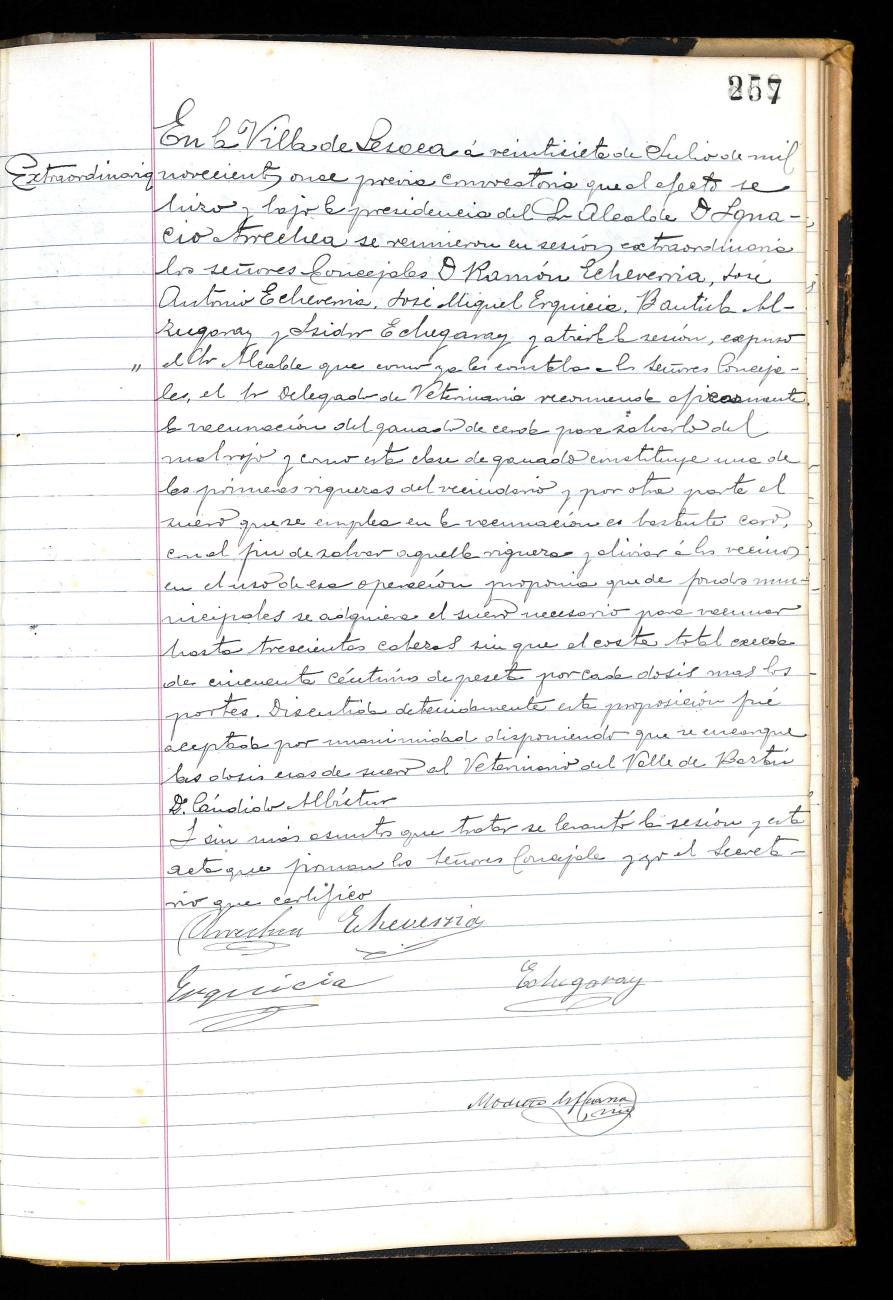 257
En la Villa de Lesaca á veintisiete de Julio de mil
Extraordinaria novecientos once previa convocatoria que al efecto se
hizo y bajo la presidencia del Sr Alcalde D Igna-
cio Arrechea se reunieron en sesión extraordinaria
los señores Concejales D Ramón Echeverria, José
Antonio Echeverria, José Miguel Erquicia, Bautista Al-
zugaray y Isidor Echegaray y abierta la sesión, expuso
" el Sr Alcalde que como ya les consta a los señores Conceja-
les, el Sr Delegado de Veterinaria recomienda eficazmente
la vacunación del ganado de cerda para salvarlo del
mal rojo y como esta clase de ganado constituye una de
las primeras riquezas del vecindario y por otra parte el
suero que se emplea en la vacunación es bastante caro,
con el fin de salvar aquella riqueza y aliviar á los vecinos
en el uso de esa operación proponia que de fondos mu-
nicipales se adquiera el suero necesario para vacunar
hasta trescientas cabezas sin que el coste total exceda
de cincuenta céntimos de peseta por cada dosis mas los
portes. Discutida detenidamente esta proposición fué
aceptada por unanimidad disponiendo que se encargue
las dosis esas de suero al Veterinario del Valle de Baztán
D. Cándido Albístur
Y sin más asuntos que tratar se levantó la sesión y esta
acta que firman los señores Concejales y yo el Secreta-
rio que certifico
Arrechea Echeverria
Erquicia Echegaray
Modesto